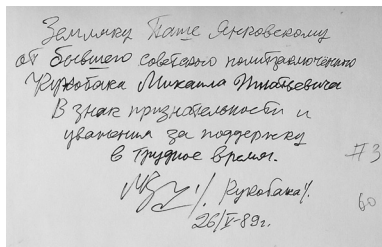 Земляку Паше Янковскому
от бывшего советского политзаключенно
Кукобака Михаила Игнатьевича
В знак признательности и
уважения за поддержку
в трудное время.
/Кукобака/.
26/V-89г.
#3
60